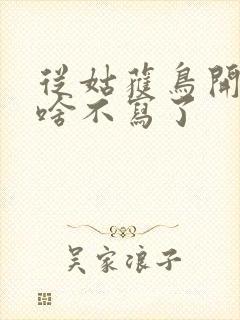 從姑蘿鳥開
啥不寫了
吳家浪子